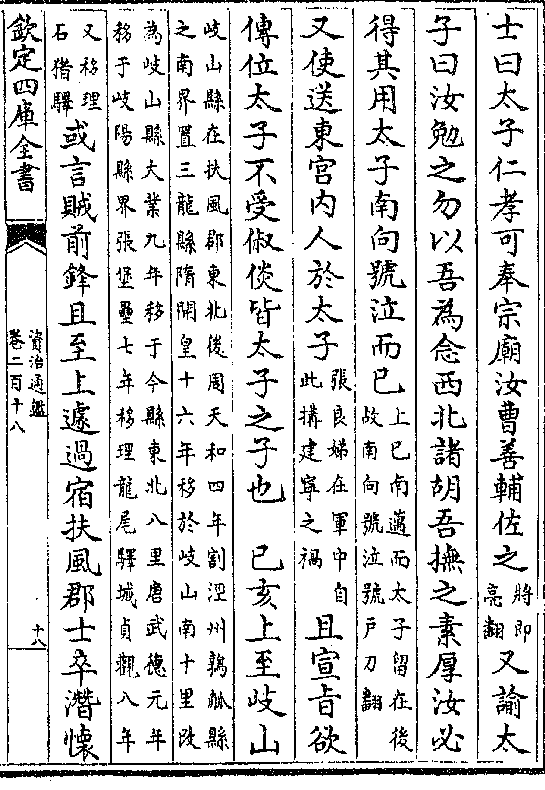 士曰太子仁孝可奉宗廟汝曹善輔佐之將即亮翻又諭太
子曰汝勉之勿以吾為念西北諸胡吾撫之素厚汝必
得其用太子南向號泣而已上已南邁而太子留在後故南向號泣號戶刀翻
又使送東宮内人於太子張良娣在軍中自此搆建寧之禍且宣旨欲
傳位太子不受俶倓皆太子之子也 己亥上至岐山
岐山縣在扶風郡東北後周天和四年割涇州鶉觚縣
之南界置三龍縣隋開皇十六年移於岐山南十里改
為岐山縣大業九年移于今縣東北八里唐武德元年
移于岐陽縣界張堡壘七年移理龍尾驛城貞觀八年
又移理石猪驛或言賊前鋒且至上遽過宿扶風郡士卒濳懷
欽定四庫全書
資治通鑑
卷二百十八
十八